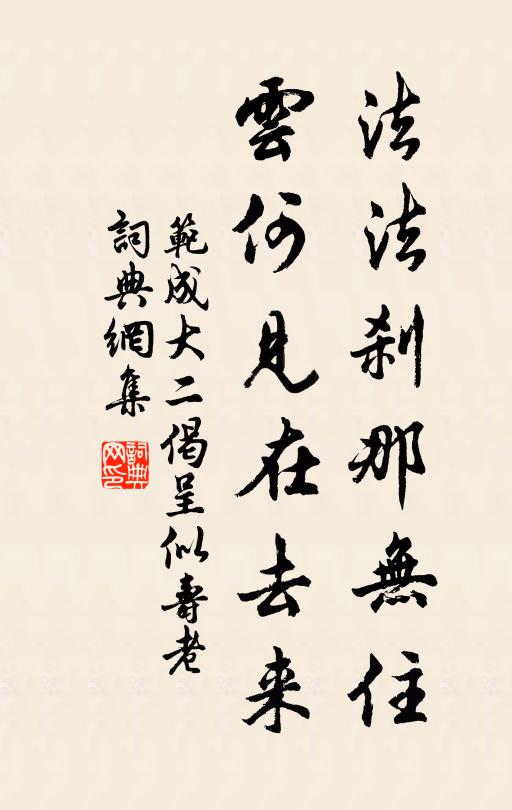 法法刹那無住
雲何見在去来
範成大二偈呈似壽老
詞典網集
詞典網印